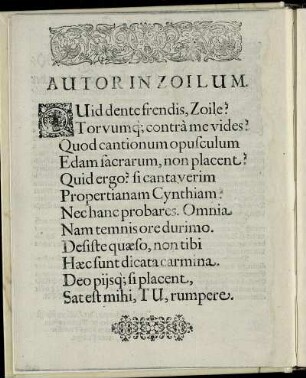 AUTOR IN ZOILUM.
QUid dente frendis, Zoile?
Torvumq; contrà me vides?
Quod cantionum opusculum
Edam sacrarum, non placent?
Quid ergo? si cantaverim
Propertianam Cynthiam?
Nec hanc probares. Omnia
Nam temnis ore durimo.
Desiste quæso, non tibi
Hæc sunt dicata carmina.
Deo pijsq; si placent,
Sat est mihi, TU, rumpere.